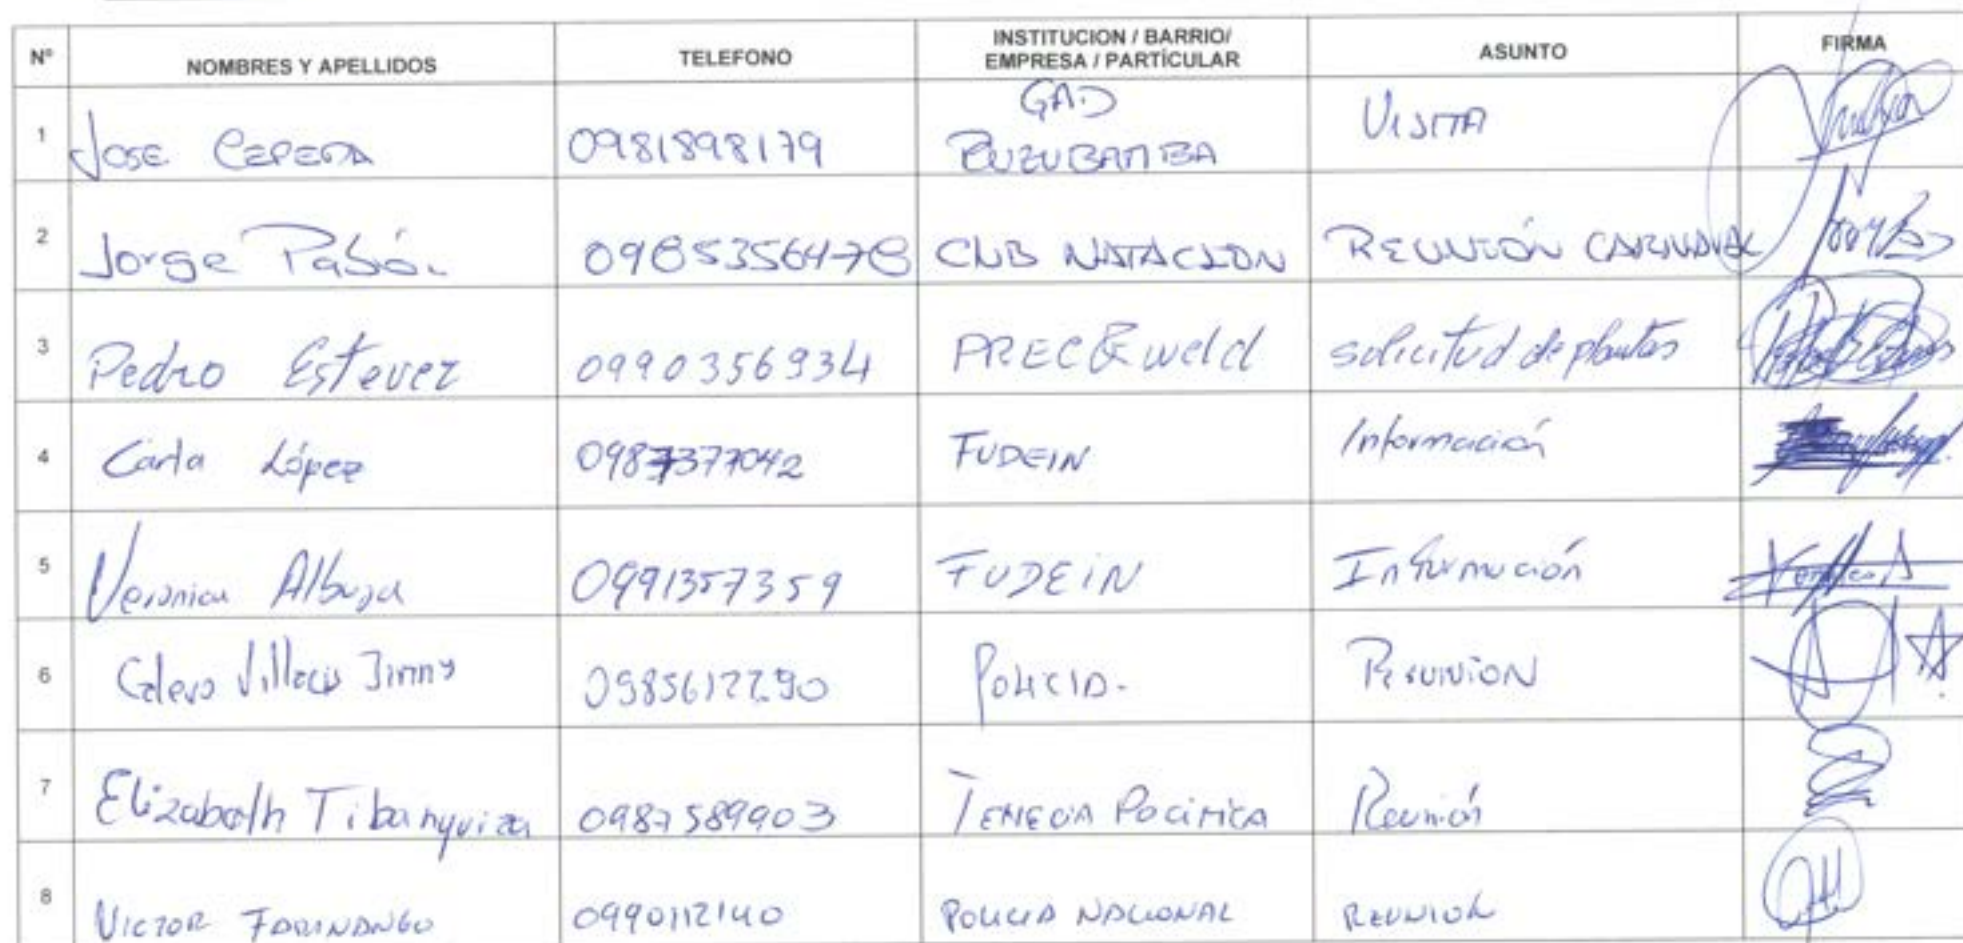 Nº NOMBRES Y APELLIDOS TELEFONO INSTITUCION / BARRIO/ EMPRESA / PARTÍCULAR ASUNTO FIRMA
1 JOSE CEPEDA 0981898179 GAD PUZUBAMBA VISITA
2 Jorge Pabón 0985356478 CLUB NATACION REUNIÓN CARNAVAL
3 Pedro Estevez 0990356934 PREC&weld solicitud de plantas
4 Carla López 0987377042 FUDEIN Información
5 Veronica Albuja 0991357359 FUDEIN Información
6 Calero Villacis Jimmy 0985617290 POLICIA. REUNION
7 Elizabeth Tibanquiza 0987589903 TENECIA POLITICA Reunión
8 VICTOR FARINANGO 0990112140 POLICIA NACIONAL REUNION